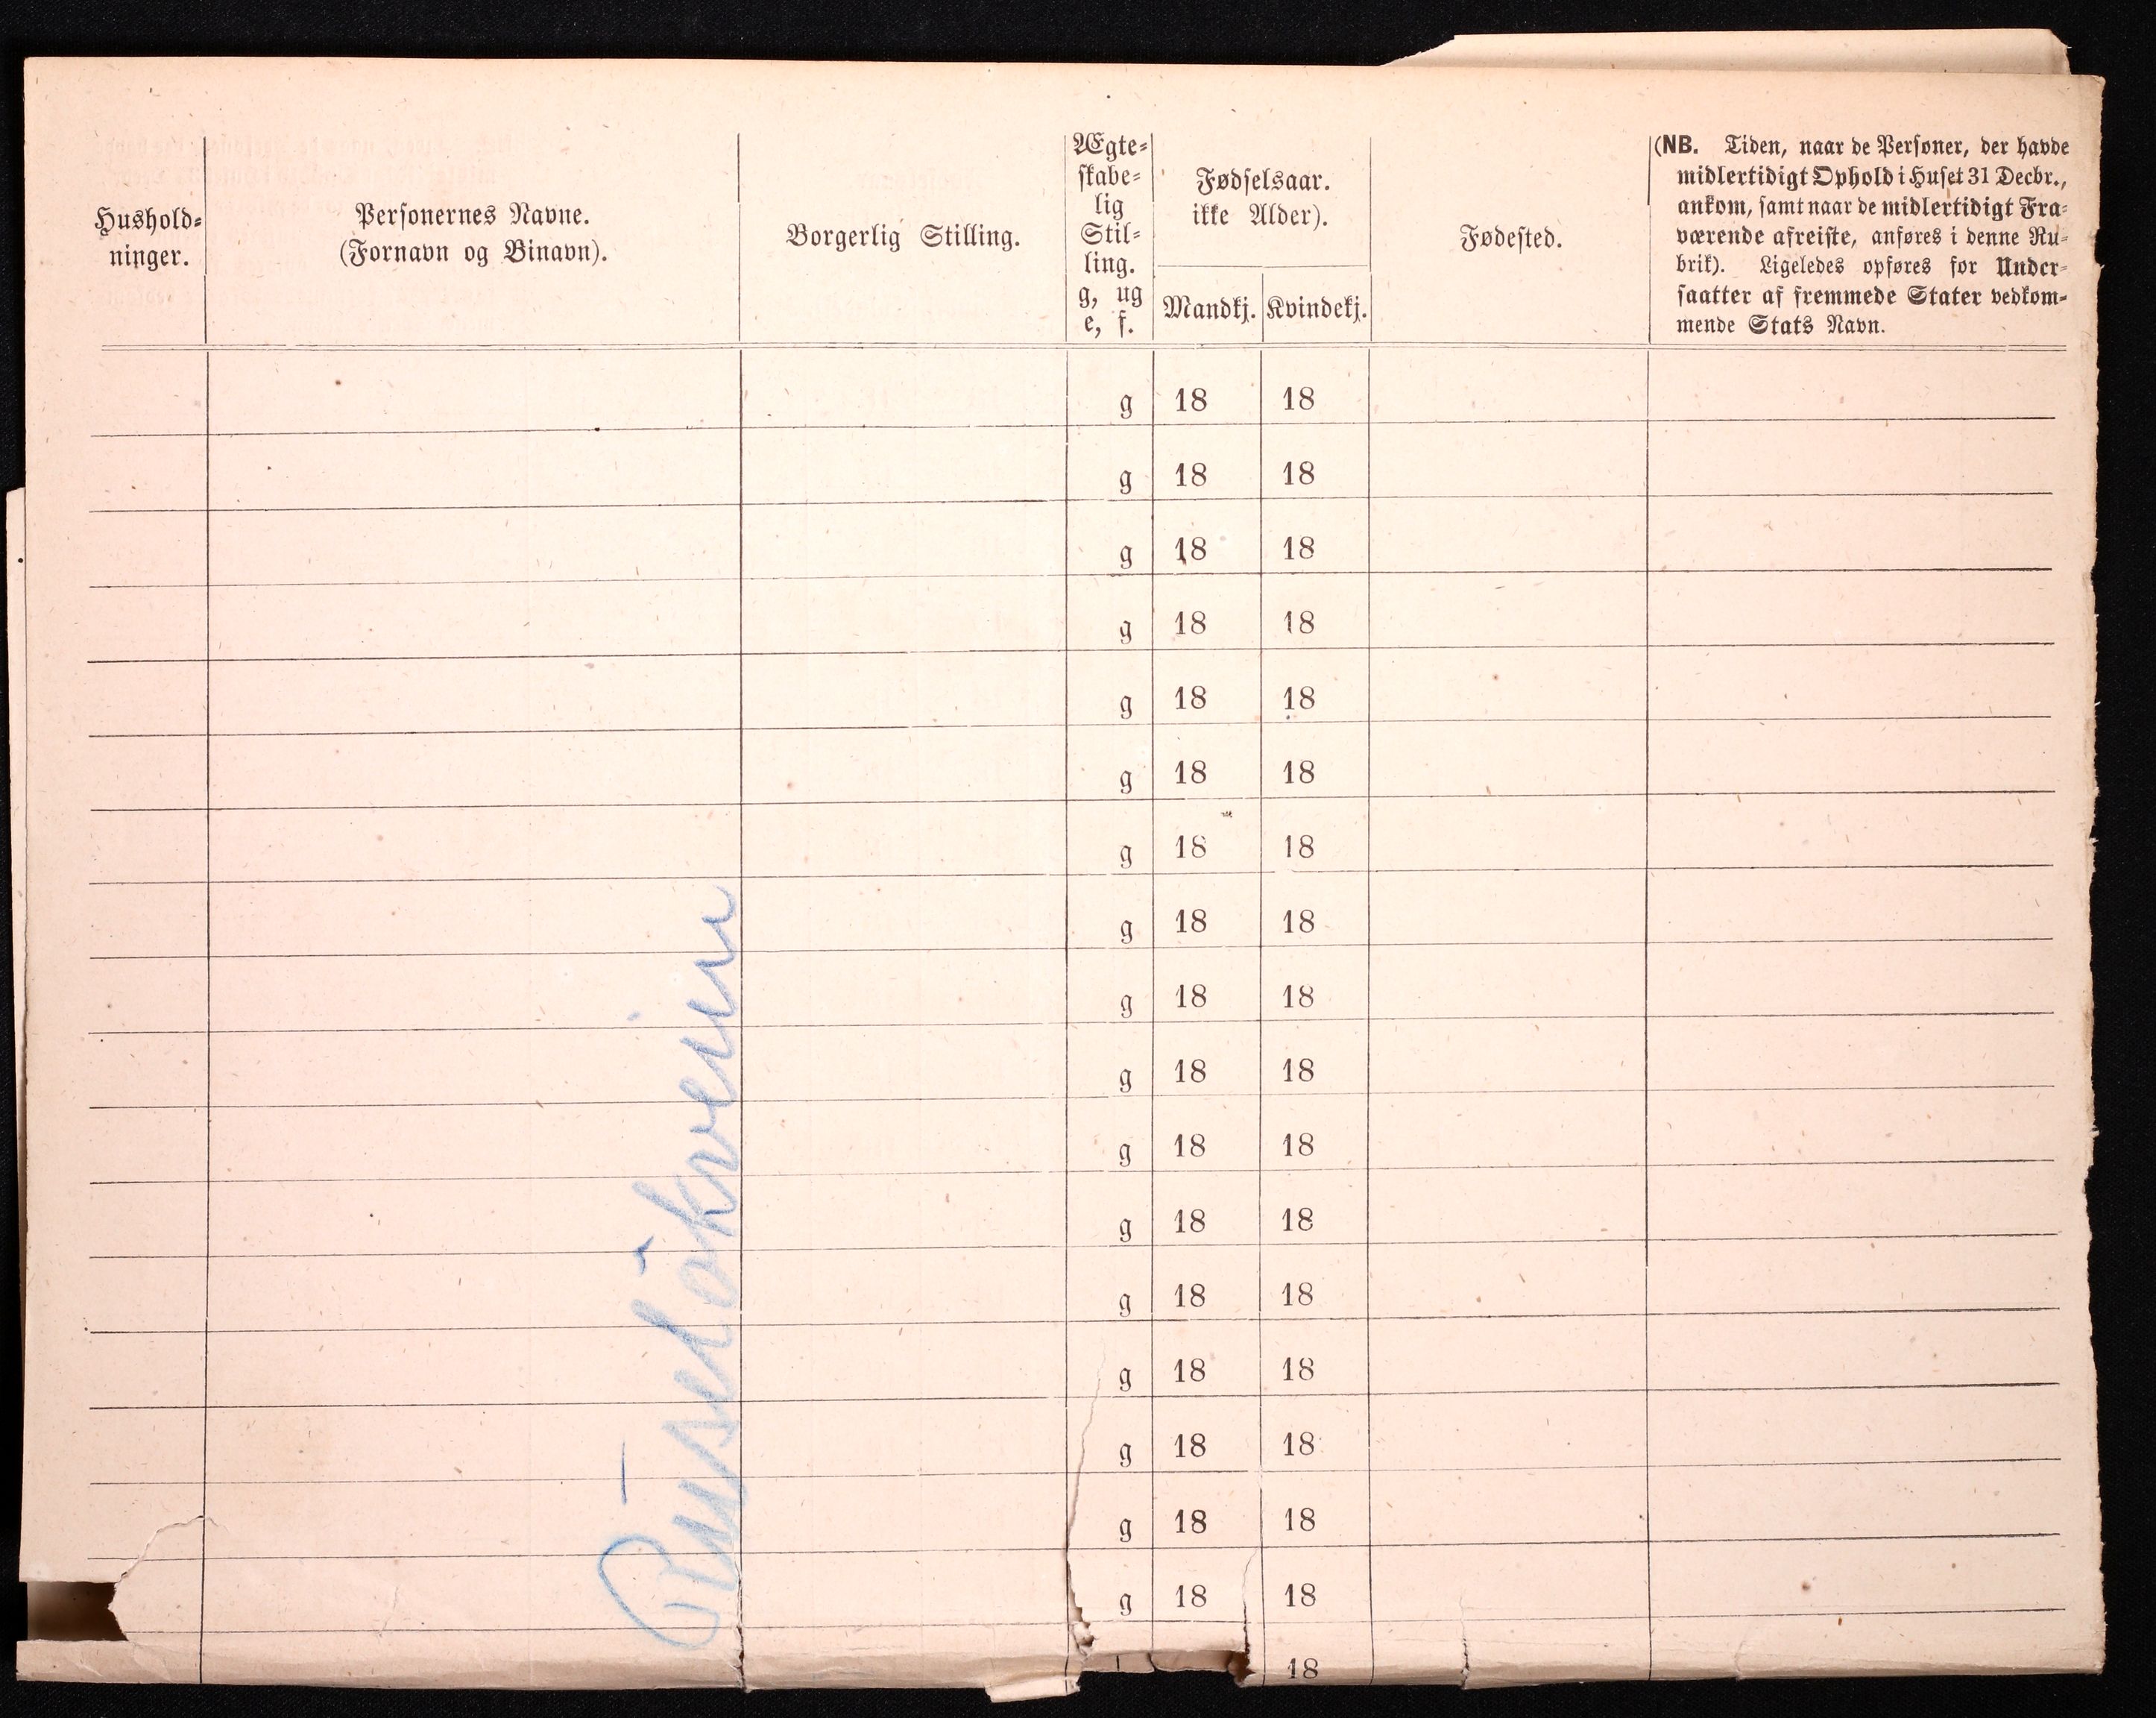 Hushold-
ninger.
Personernes Navne.
(Fornavn og Binavn).
Borgerlig Stilling.
Ægte-
skabe-
lig
Stil-
ling.
g, ug
e, f.
Fødselsaar.
ikke Alder).
Mandkj. Kvindekj.
Fødested.
(NB. Tiden, naar de Personer, der havde
midlertidigt Ophold i Huset 31 Decbr.,
ankom, samt naar de midlertidigt Fra-
værende afreiste, anføres i denne Ru-
brik). Ligeledes opføres for Under-
saatter af fremmede Stater vedkom-
mende Stats Navn.
g 18 18
g 18 18
g 18 18
g 18 18
g 18 18
g 18 18
g 18 18
g 18 18
g 18 18
g 18 18
g 18 18
g 18 18
g 18 18
g 18 18
g 18 18
g 18 18
g 18 18
18
Ruselökveien